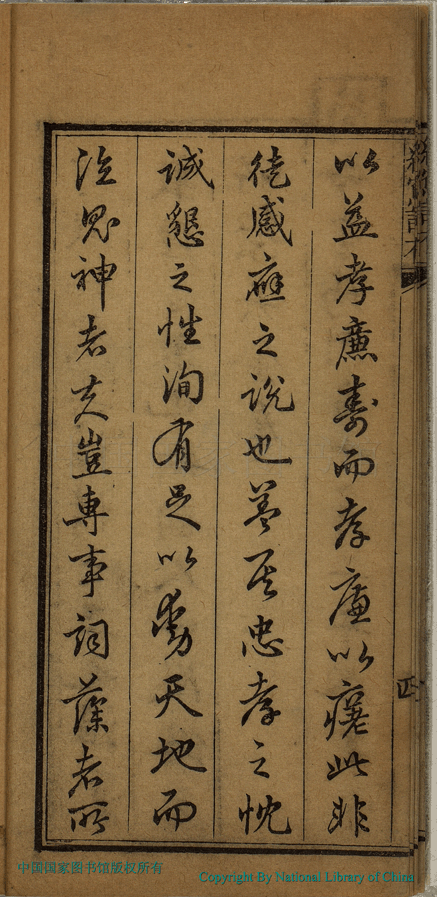 以益孝廉壽而孝廉以瘥此非
徒感應之說也蓋其忠孝之忱
誠懇之性洵有足以動天地而
泣鬼神者夫豈專事詞藻者所
四
中国国家图书馆版权所有
Copyright By National Library of China